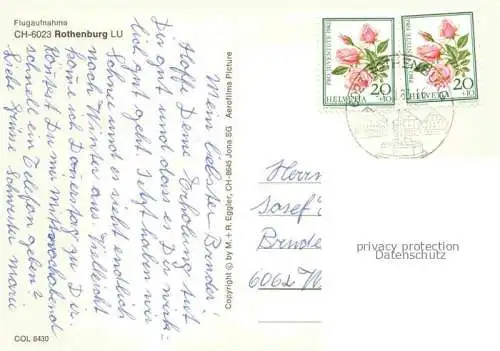 Flugaufnahme
CH-6023 Rothenburg LU
Mein liebster Bruder!
Hoffe Deine Erholung tut
Dir gut und dass es Dir wirk-
lich gut geht. Jetzt haben wir
Schnee und es sieht endlich
nach Winter aus. Vielleicht
komme ich Donerstag zu Dir.
Könntest Du mir Mittwochabend
schnell ein Telefon geben?
Liebe Grüsse Schwester Marie
Copyright © by M. + R. Eggler, CH-8645 Jona SG Aerofilms Picture
COL 8430
PRO JUVENTUTE 1982
20
+10
HELVETIA
PRO JUVENTUTE 1982
20
+10
HELVETIA
Herrn
Josef
6062
privacy protection
Datenschutz